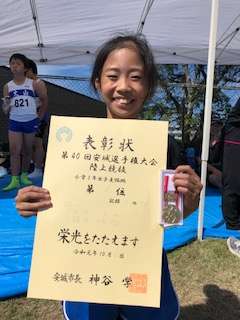 表彰状
第40回安城選手権大会
陸上競技
小学5年女子走幅跳
第 位
記録
栄光をたたえます
令和元年10月 日
安城市長 神谷 学
821